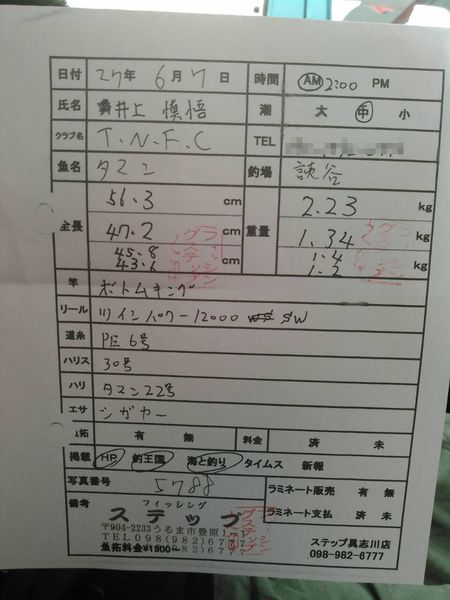 日付 27年 6月 7日 時間 AM 2:00 PM
氏名 井上 慎悟 潮 大 中 小
クラブ名 T.N.F.C TEL
魚名 タマン 釣場 読谷
全長 56.3 cm 重量 2.23 kg
47.2 cm 1.34 kg
45.8 1.4
43.1 cm 1.2 kg
竿 ボトムキング
リール ツインパワー12000 SW
道糸 PE 6号
ハリス 30号
ハリ タマン22号
エサ シガヤー
拓 有 無 料金 済 未
掲載 HP 釣王国 海と釣り タイムス 新報
写真番号 5788 ラミネート販売 有 無
備考 フィッシング
ステップ ラミネート支払 済 未
〒904-2233うるま市豊原
TEL098(982)6777 ステップ具志川店
魚拓料金¥1500〜 098-982-6777